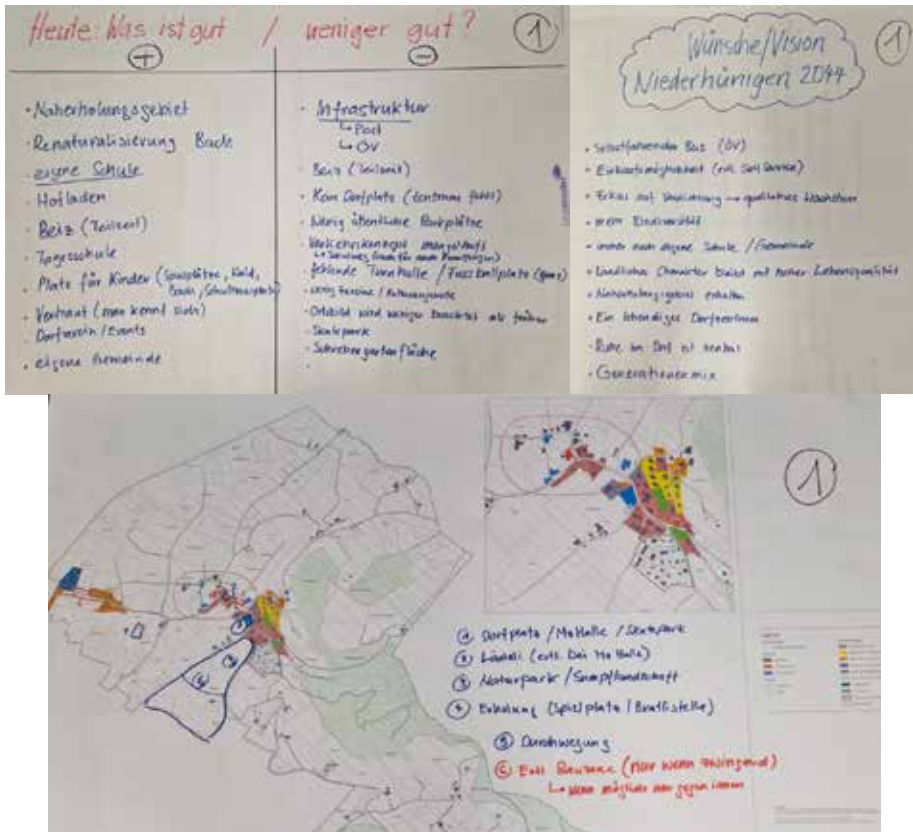 Heute: Was ist gut / weniger gut?
1
+
-
• Naherholungsgebiet
• Renaturalisierung Bach
• eigene Schule
• Hofladen
• Beiz (Teilzeit)
• Tagesschule
• Platz für Kinder (Spielplätze, Wald,
Bach, Schulhausplatz)
• Vertraut (man kennt sich)
• Dorfverein/Events
• eigene Gemeinde
• Infrastruktur
↳ Post
↳ ÖV
• Beiz (Teilzeit)
• Kein Dorfplatz (Zentrum fehlt)
• Wenig öffentliche Parkplätze
• Verkehrskonzept mangelhaft
• fehlende Turnhalle / Fussballplatz (gross)
• wenig Vereine / Kulturangebote
• Ortsbild wird weniger beachtet als früher
• Skatepark
• Schrebergartenfläche
Wünsche/Vision
Niederhünigen 2044
1
• Selbstfahrender Bus (ÖV)
• Einkaufsmöglichkeit (evtl. Self Service)
• Fokus auf → qualitatives Wachstum
• mehr Biodiversität
• immer noch eigene Schule / Gemeinde
• Ländlicher Charakter bleibt mit hoher Lebensqualität
• Naherholungsgebiet erhalten
• Ein lebendiges Dorfzentrum
• Ruhe im Dorf ist zentral
• Generationenmix
1
① Dorfplatz / MzHalle / Skatepark
② (evtl. bei MzHalle)
③ Naturpark / Sumpflandschaft
④ Erholung (Spielplatz / Brätlistelle)
⑤ Durchwegung
⑥ Evtl. Bauzone (nur wenn zwingend)
↳ Wenn möglich nur gegen innen